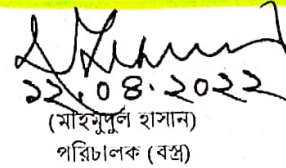 ১২.০৪.২০২২
(মাহমুদুল হাসান)
পরিচালক (বস্ত্র)